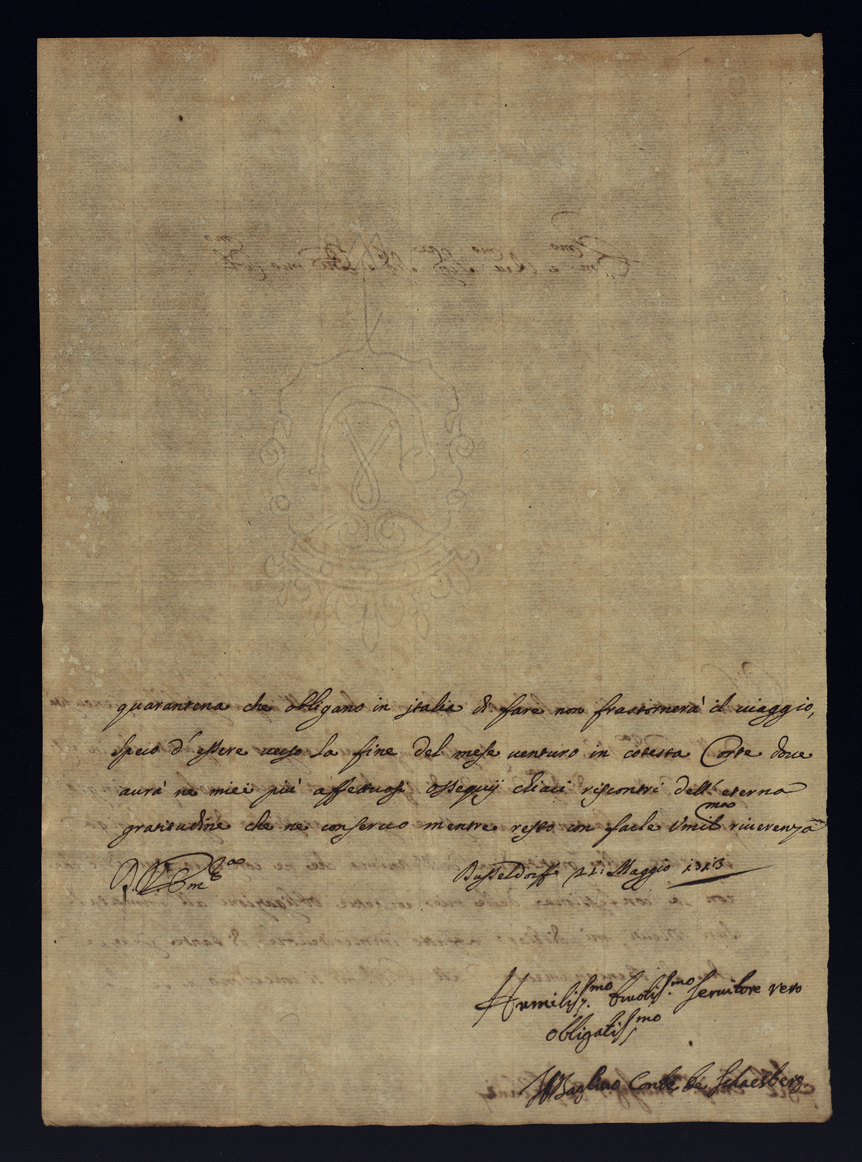 quarantena che obligano in italia di fare non frastornerà il viaggio,
spero d'essere verso la fine del mese venturo in cotesta Corte dove
aurà ne miei più affettuosi ossequij chiari riscontri dell'eterna
gratitudine che ne conservo mentre resto con farle l'umil.ma riverenza
D. V. Em.za
Dusseldorff 21: Maggio 1713
Humiliss.mo divotiss.mo servitore vero
obligatiss.mo
Conte de Schaesberg.